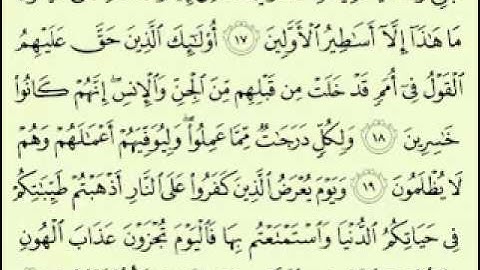 مَا هَٰذَآ إِلَّآ أَسَٰطِيرُ ٱلْأَوَّلِينَ ١٧ أُو۟لَٰٓئِكَ ٱلَّذِينَ حَقَّ عَلَيْهِمُ
ٱلْقَوْلُ فِىٓ أُمَمٍ قَدْ خَلَتْ مِن قَبْلِهِم مِّنَ ٱلْجِنِّ وَٱلْإِنسِ ۖ إِنَّهُمْ كَانُوا۟
خَٰسِرِينَ ١٨ وَلِكُلٍّ دَرَجَٰتٌ مِّمَّا عَمِلُوا۟ ۖ وَلِيُوَفِّيَهُمْ أَعْمَٰلَهُمْ وَهُمْ
لَا يُظْلَمُونَ ١٩ وَيَوْمَ يُعْرَضُ ٱلَّذِينَ كَفَرُوا۟ عَلَى ٱلنَّارِ أَذْهَبْتُمْ طَيِّبَٰتِكُمْ
فِى حَيَاتِكُمُ ٱلدُّنْيَا وَٱسْتَمْتَعْتُم بِهَا فَٱلْيَوْمَ تُجْزَوْنَ عَذَابَ ٱلْهُونِ